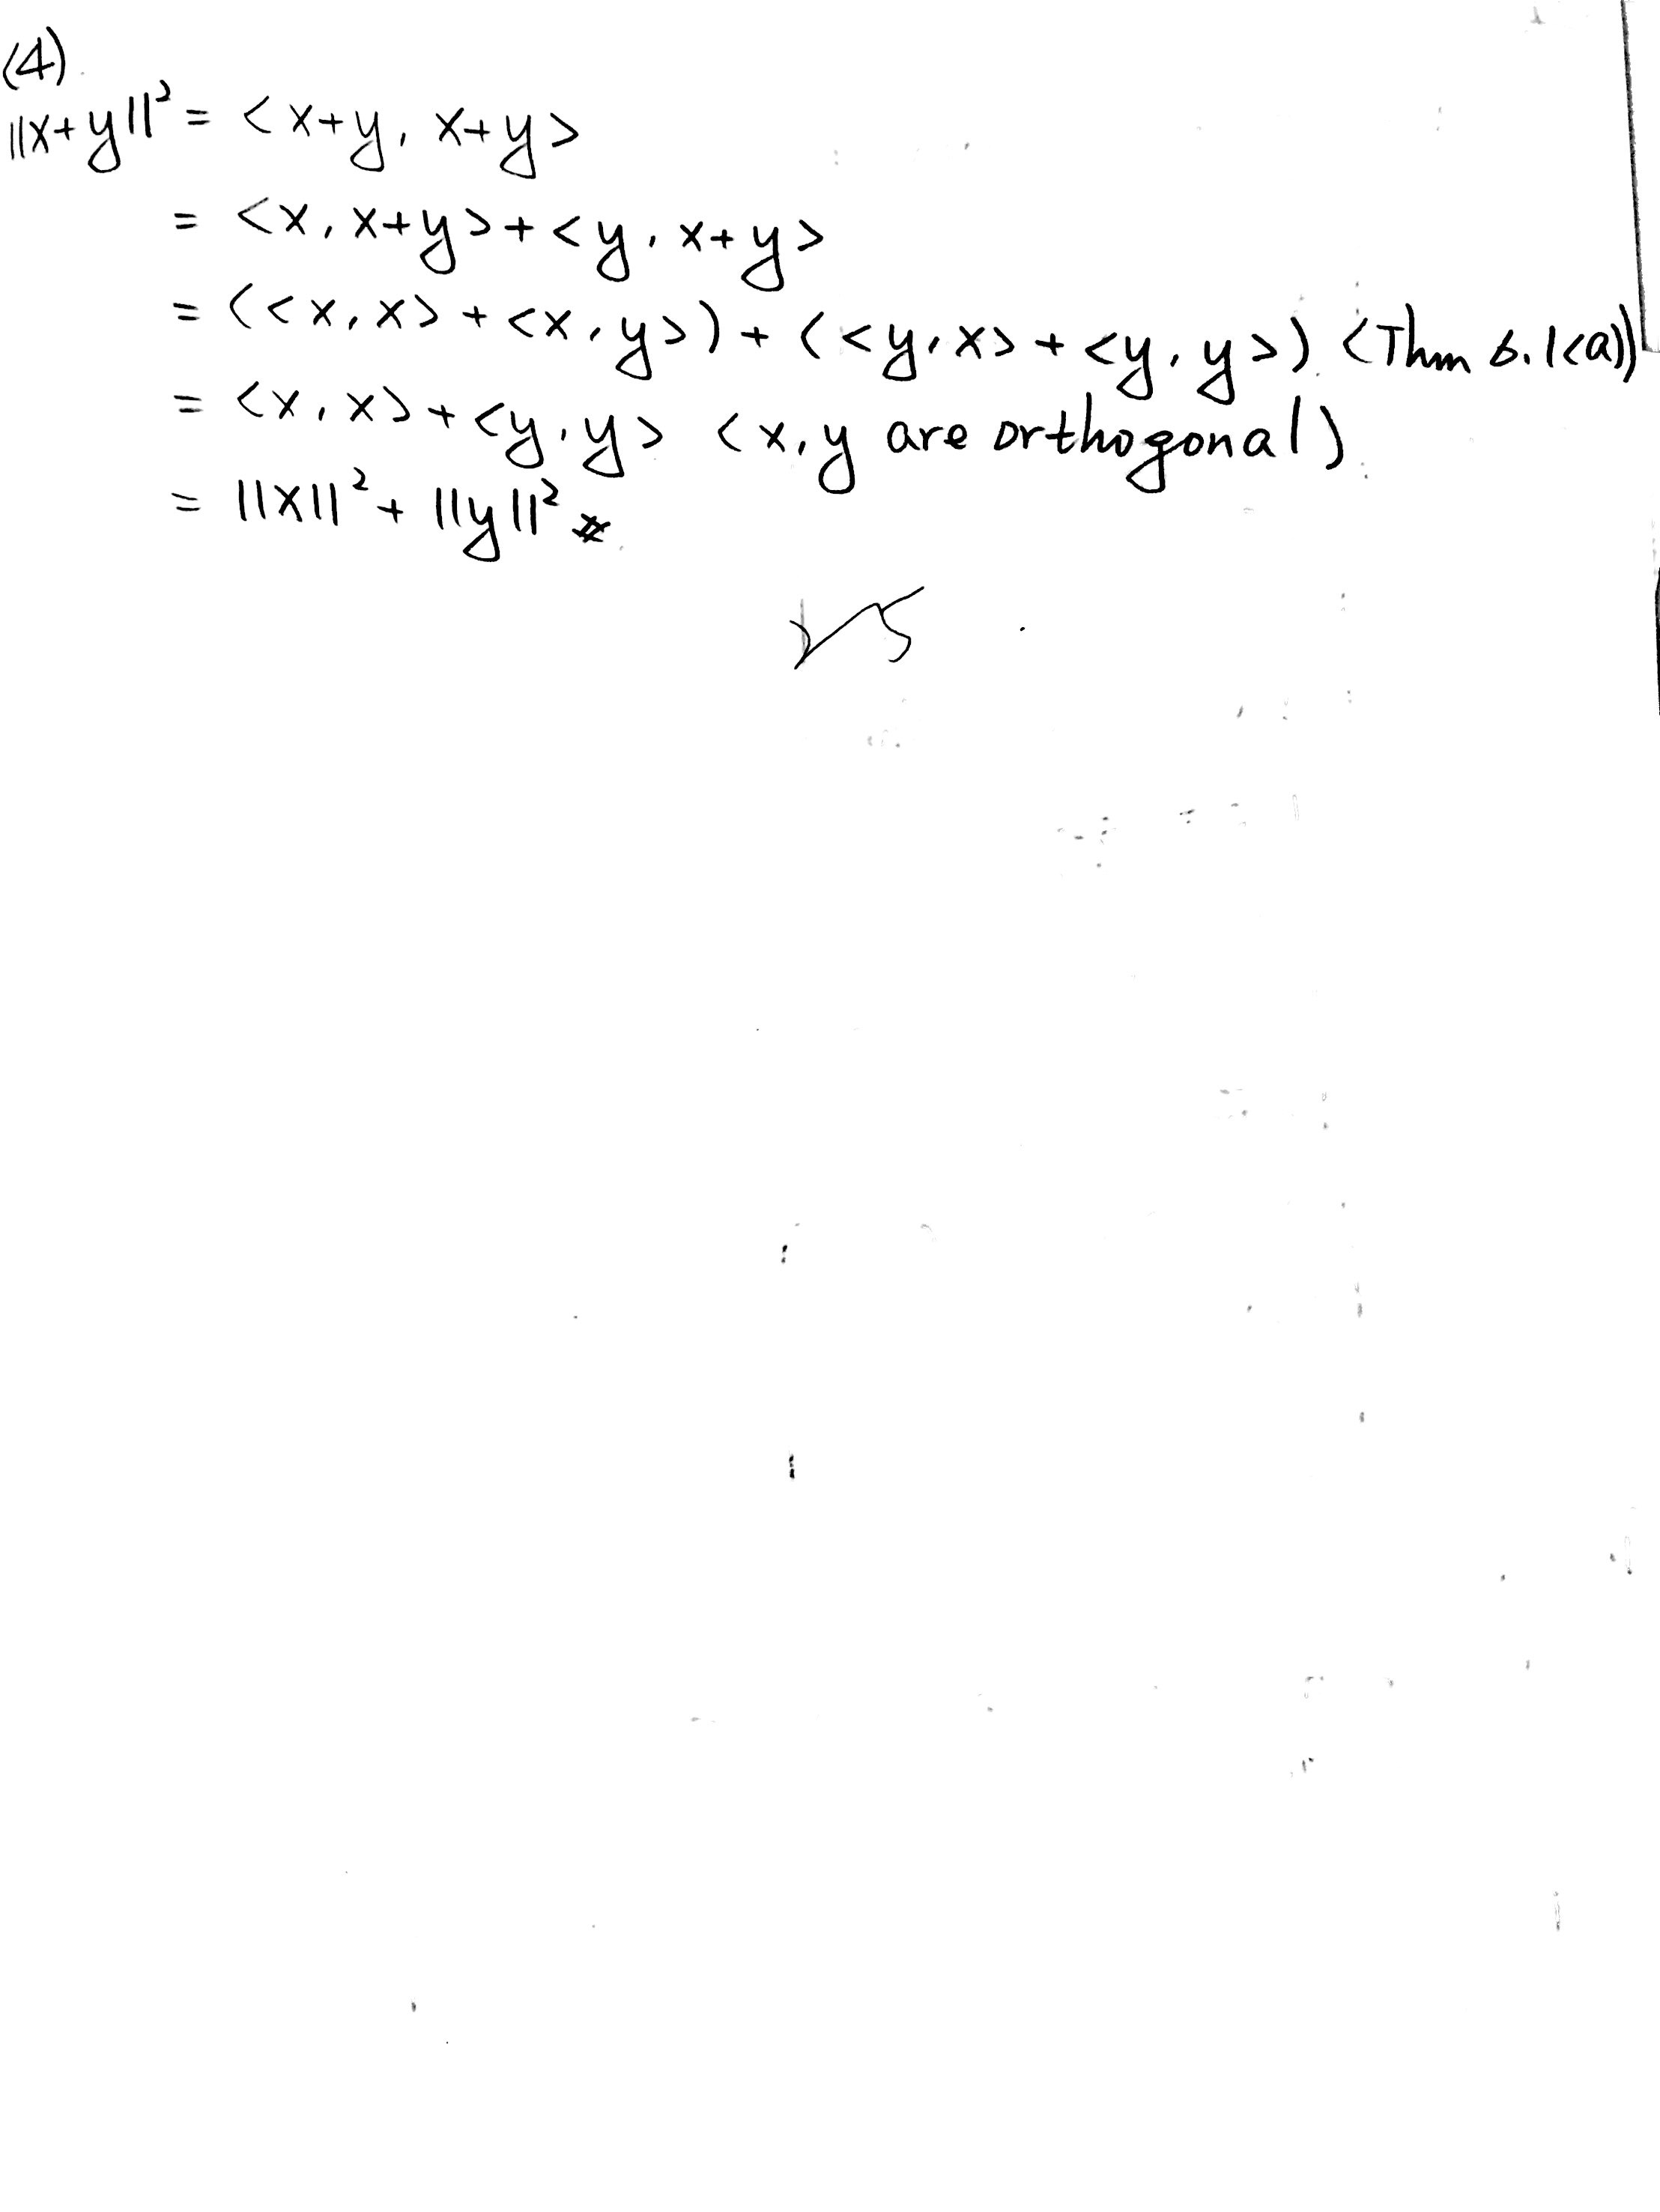 (4)
||x+y||² = <x+y, x+y>
= <x, x+y>+<y, x+y>
= (<x, x>+<x, y>)+(<y, x>+<y, y>) (Thm 6.1(a))
= <x, x>+<y, y> (x, y are orthogonal)
= ||x||²+||y||² #
5